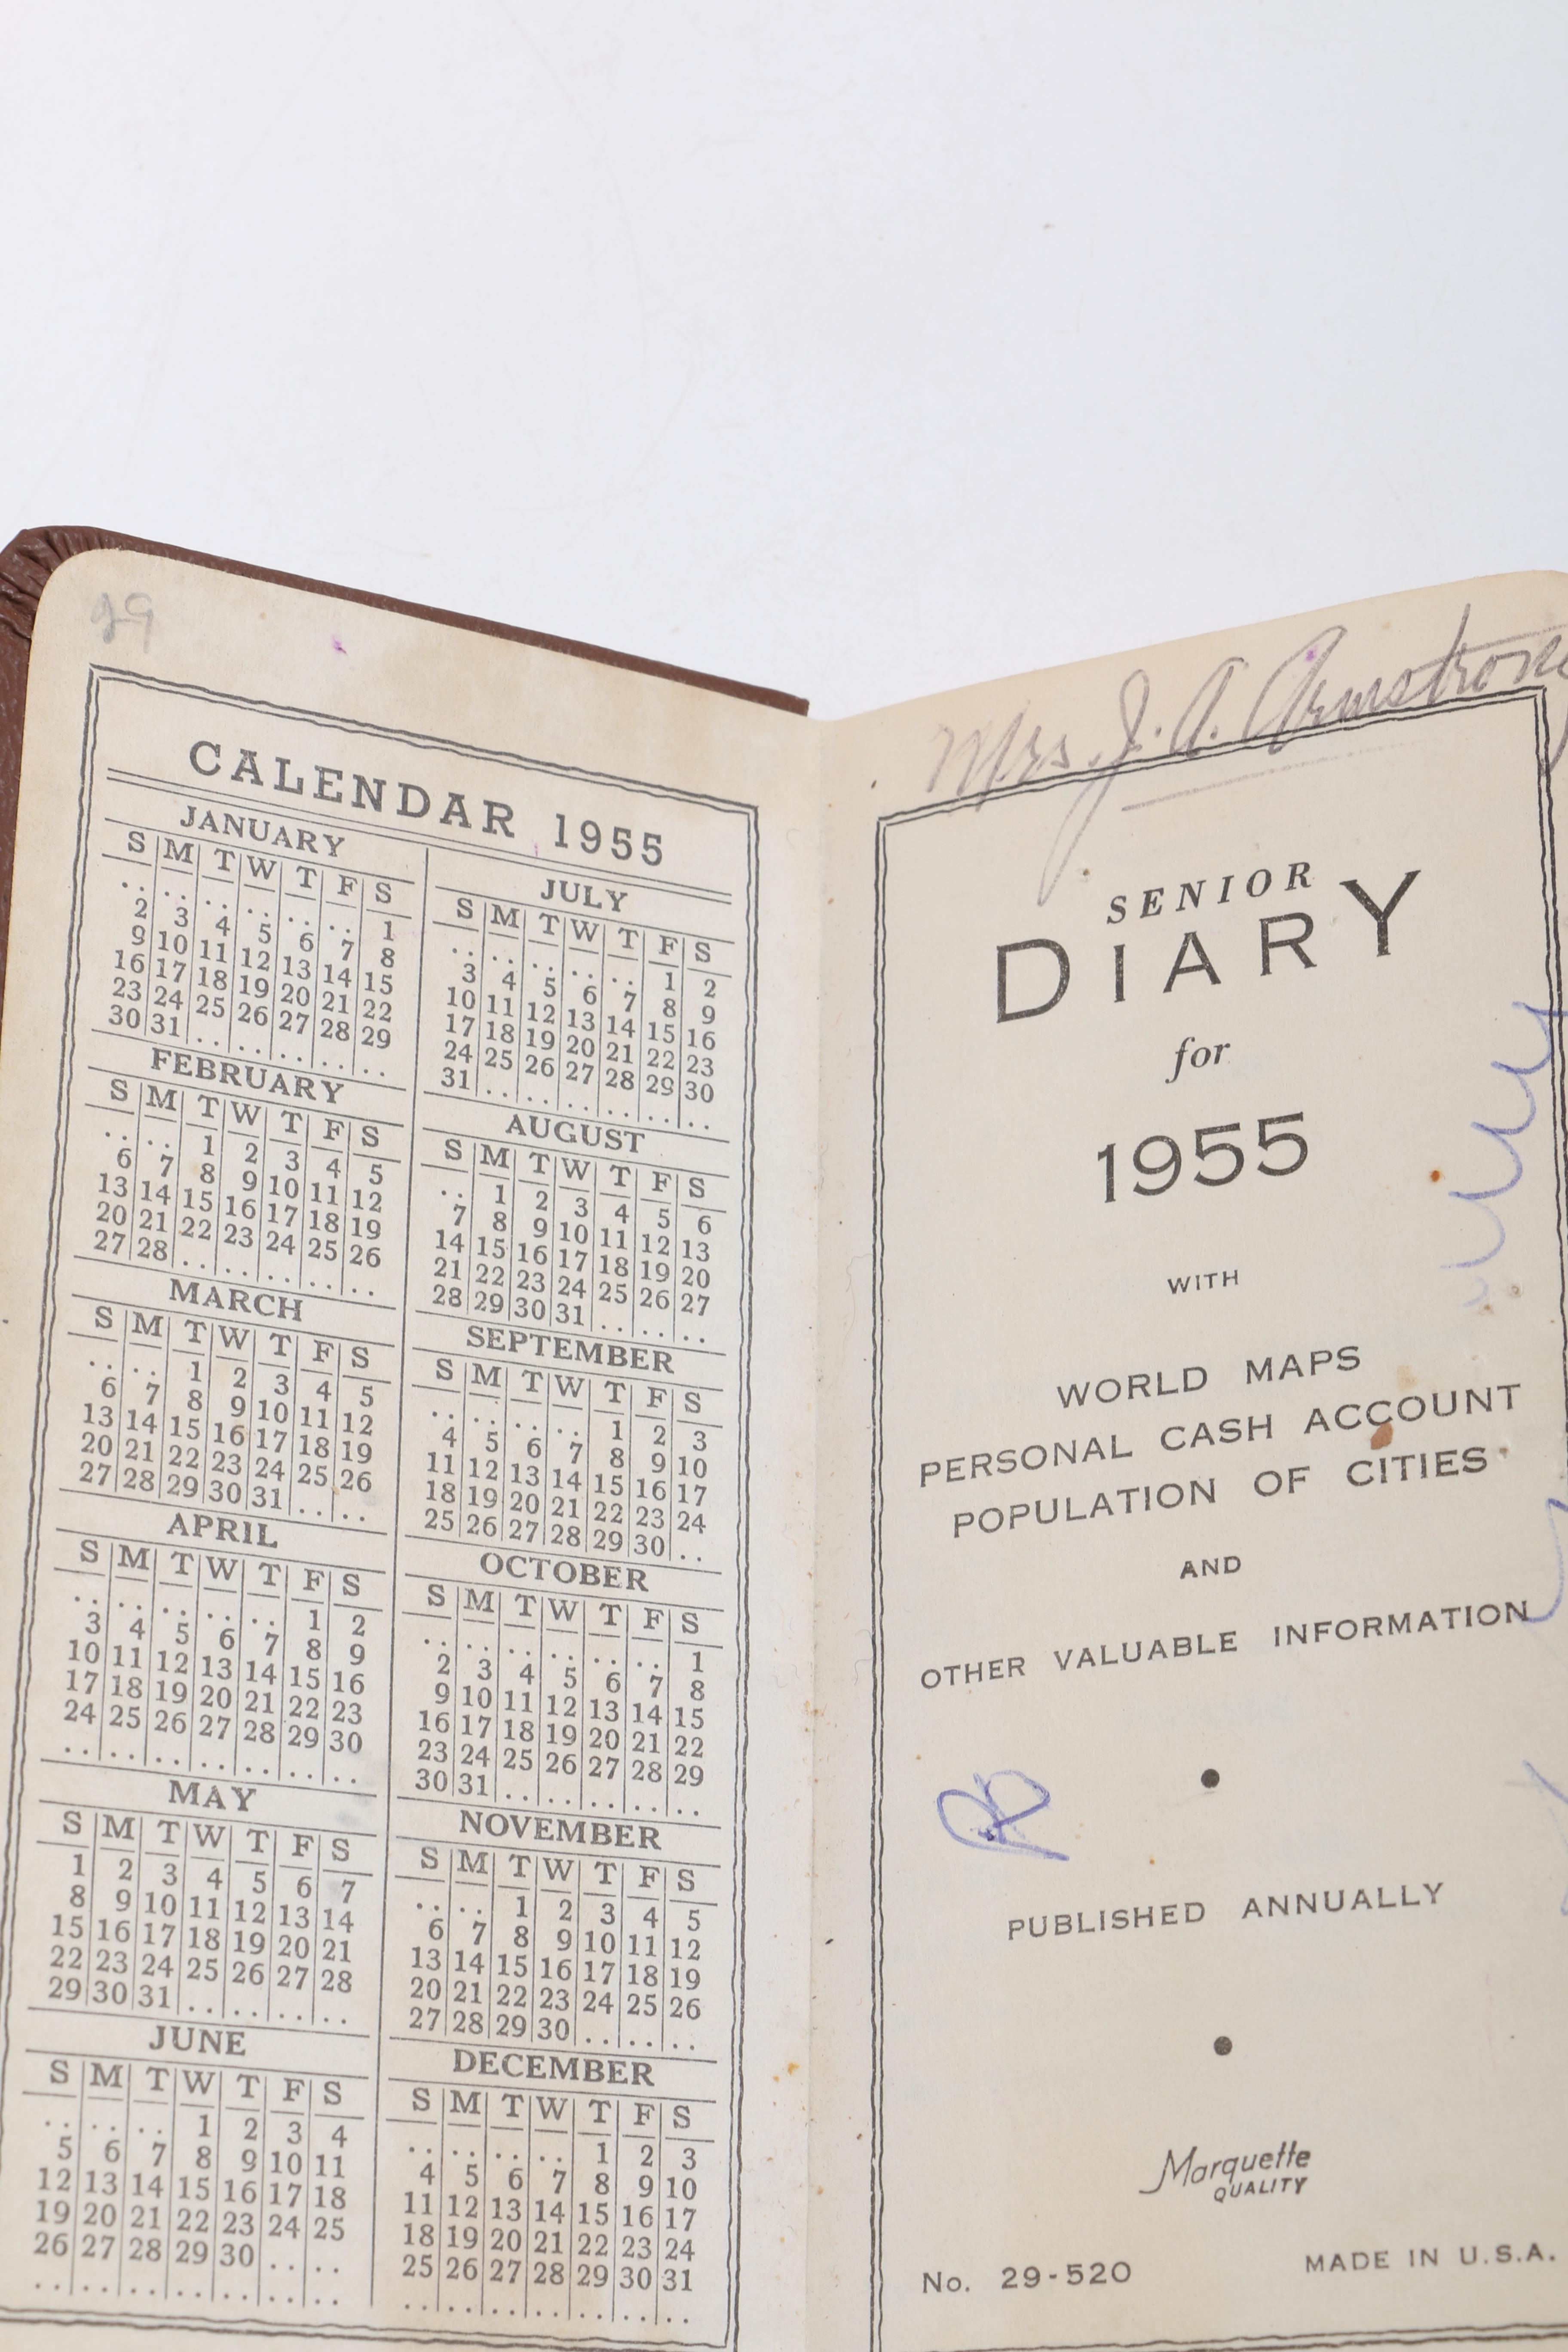 29
CALENDAR 1955
JANUARY
S M T W T F S
.. .. .. .. .. .. 1
2 3 4 5 6 7 8
9 10 11 12 13 14 15
16 17 18 19 20 21 22
23 24 25 26 27 28 29
30 31 .. .. .. .. ..
FEBRUARY
S M T W T F S
.. .. 1 2 3 4 5
6 7 8 9 10 11 12
13 14 15 16 17 18 19
20 21 22 23 24 25 26
27 28 .. .. .. .. ..
MARCH
S M T W T F S
.. .. 1 2 3 4 5
6 7 8 9 10 11 12
13 14 15 16 17 18 19
20 21 22 23 24 25 26
27 28 29 30 31 .. ..
APRIL
S M T W T F S
.. .. .. .. .. 1 2
3 4 5 6 7 8 9
10 11 12 13 14 15 16
17 18 19 20 21 22 23
24 25 26 27 28 29 30
.. .. .. .. .. .. ..
MAY
S M T W T F S
1 2 3 4 5 6 7
8 9 10 11 12 13 14
15 16 17 18 19 20 21
22 23 24 25 26 27 28
29 30 31 .. .. .. ..
JUNE
S M T W T F S
.. .. .. 1 2 3 4
5 6 7 8 9 10 11
12 13 14 15 16 17 18
19 20 21 22 23 24 25
26 27 28 29 30 .. ..
.. .. .. .. .. .. ..
JULY
S M T W T F S
.. .. .. .. .. 1 2
3 4 5 6 7 8 9
10 11 12 13 14 15 16
17 18 19 20 21 22 23
24 25 26 27 28 29 30
31 .. .. .. .. .. ..
AUGUST
S M T W T F S
.. 1 2 3 4 5 6
7 8 9 10 11 12 13
14 15 16 17 18 19 20
21 22 23 24 25 26 27
28 29 30 31 .. .. ..
SEPTEMBER
S M T W T F S
.. .. .. .. 1 2 3
4 5 6 7 8 9 10
11 12 13 14 15 16 17
18 19 20 21 22 23 24
25 26 27 28 29 30 ..
OCTOBER
S M T W T F S
.. .. .. .. .. .. 1
2 3 4 5 6 7 8
9 10 11 12 13 14 15
16 17 18 19 20 21 22
23 24 25 26 27 28 29
30 31 .. .. .. .. ..
NOVEMBER
S M T W T F S
.. .. 1 2 3 4 5
6 7 8 9 10 11 12
13 14 15 16 17 18 19
20 21 22 23 24 25 26
27 28 29 30 .. .. ..
DECEMBER
S M T W T F S
.. .. .. .. 1 2 3
4 5 6 7 8 9 10
11 12 13 14 15 16 17
18 19 20 21 22 23 24
25 26 27 28 29 30 31
.. .. .. .. .. .. ..
Mrs. J. A. Armstrong
SENIOR
DIARY
for
1955
WITH
WORLD MAPS
PERSONAL CASH ACCOUNT
POPULATION OF CITIES
AND
OTHER VALUABLE INFORMATION
PUBLISHED ANNUALLY
Marquette
QUALITY
No. 29-520 MADE IN U.S.A.